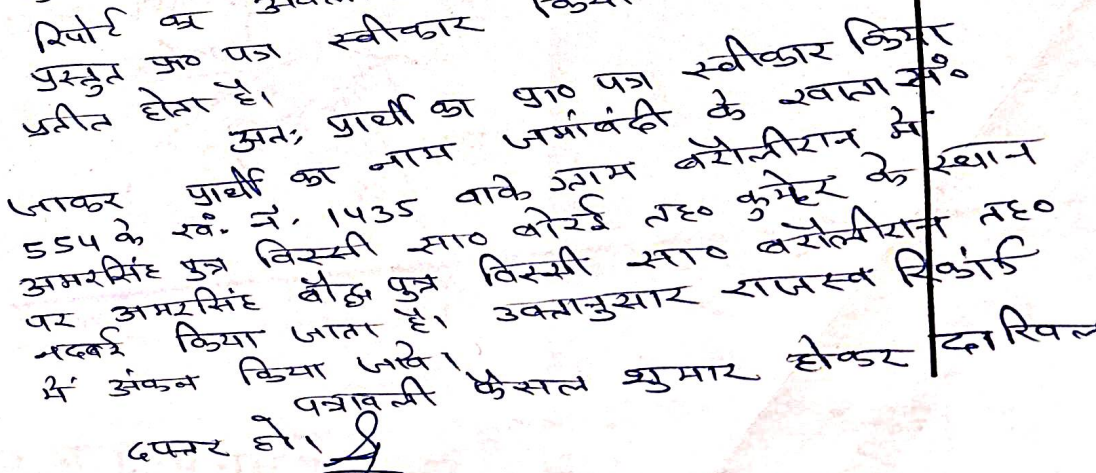 रिपोर्ट का
प्रस्तुत प्रा० पत्र स्वीकार किया
प्रतीत होता है।
अतः प्रार्थी का प्रा० पत्र स्वीकार किया
जाकर प्रार्थी का नाम जमांबंदी के खाता सं०
554 के ख. नं. 1435 वाके ग्राम बरौलीरान में
अमरसिंह पुत्र विस्सी सा० बोरई तह० कुम्हेर के स्थान
पर अमरसिंह बौद्ध पुत्र विस्सी सा० बरौलीरान तह०
नदबई किया जाता है। उक्तानुसार राजस्व रिकॉर्ड
में अंकन किया जावे।
पत्रावली फैसल शुमार होकर दाखिल
दफ्तर हो।